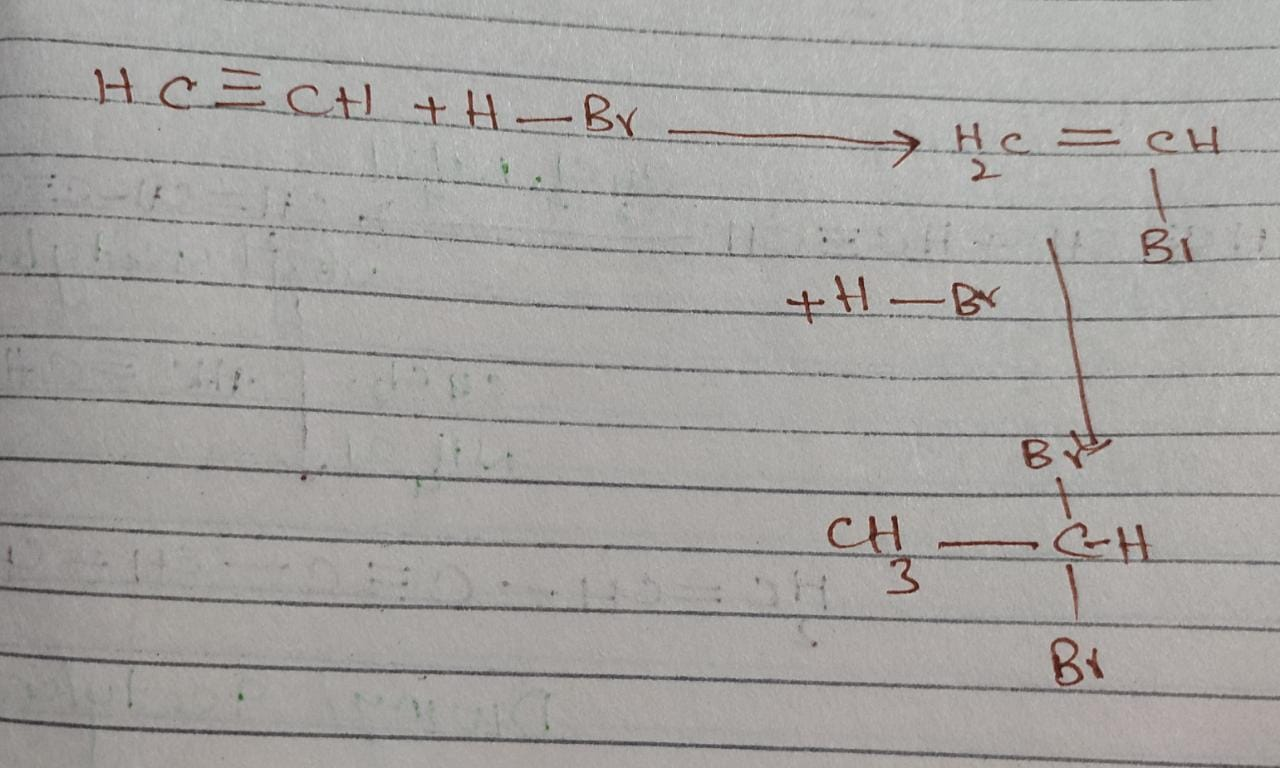 HC≡CH + H—Br ⟶ H₂C=CH
|
Br
+H—Br
Br
|
CH₃—C-H
|
Br